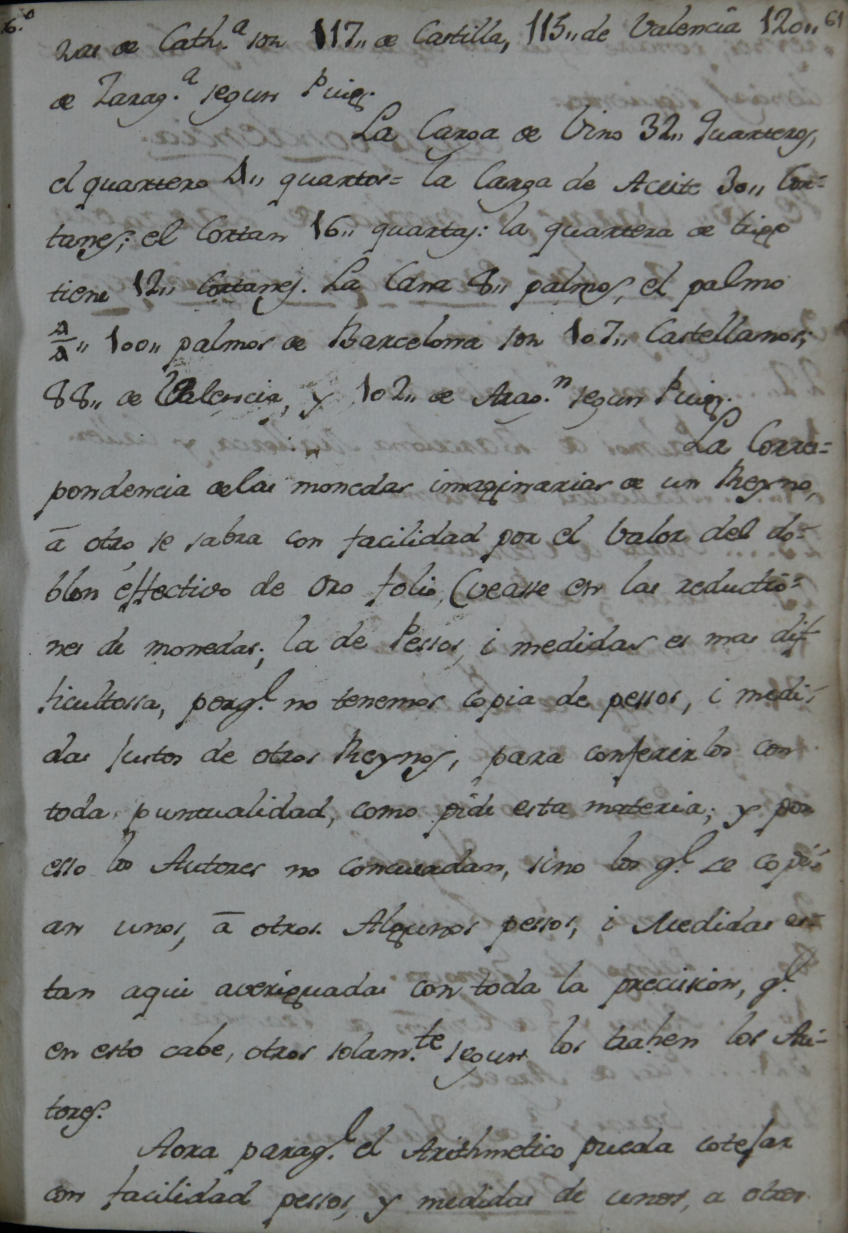 6.º 61
zas de Cath.ª son 117,, de Castilla, 115,, de Valencia 120,,
de Zarag.ª segun Puig.
La Carga de Vino 32,, quarteros,
el quartero 4,, quartos= la Carga de Aceite 30,, Cor=
tanes; el Cortan 16,, quartas: la quartera de trigo
tiene 12,, Cortanes. La Cana 8,, palmos, el palmo
4/4,, 100,, palmos de Barcelona son 107,, Castellanos;
88,, de Valencia, y 102,, de Arag.n segun Puig.
La Corres=
pondencia delas monedas imaginarias de un Reyno,
à otro se sabra con facilidad por el Valor del do=
blon effectivo de Oro folio, (vease en las reductio=
nes de monedas; la de Pessos, i medidas es mas dif=
ficultossa, porq.l no tenemos copia de pessos, i medi=
das justos de otros Reynos, para conferirlos con
toda puntualidad, como pide esta materia; y por
esso los Autores no concuerdan, sino los q.l se copi=
an unos, à otros. Algunos pessos, i Medidas es=
tan aqui averiguadas con toda la precision, q.l
en esto cabe, otros solam.te segun los trahen los Au=
tores.
Aora paraq.l el Arithmetico pueda cotejar
con facilidad pessos, y medidas de unos, a otros